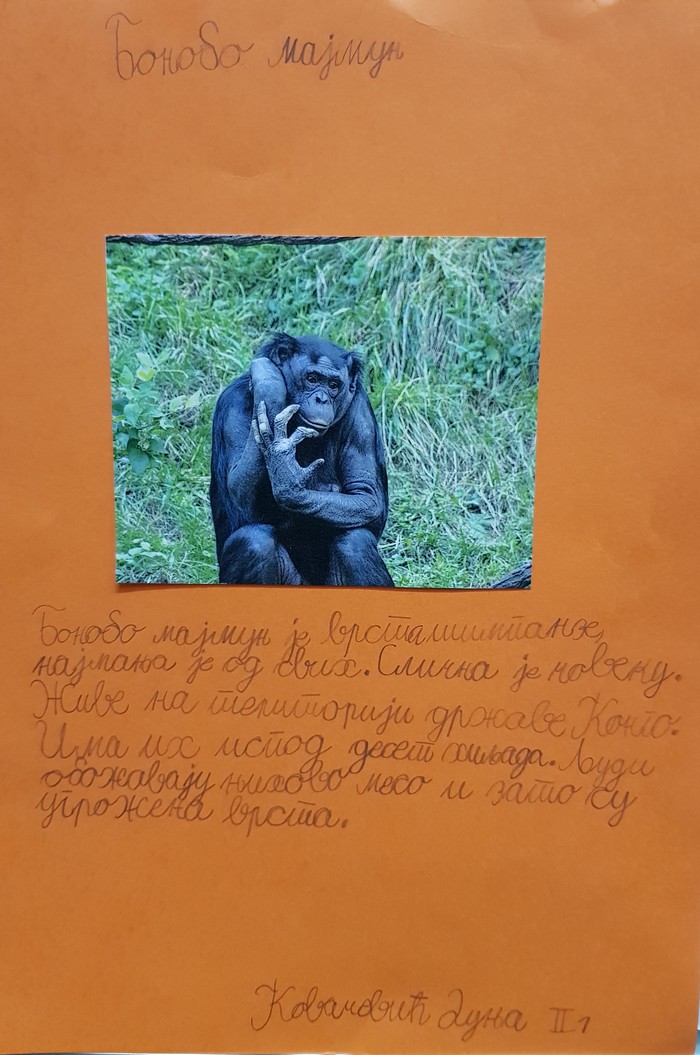 Бонобо мајмун
Бонобо мајмун је врста шимпанзе,
најмања је од свих. Слична је човеку.
Живе на територији државе Конго.
Има их испод десет хиљада. Људи
обожавају њихово месо и зато су
угрожена врста.
Ковачовић Дуња II1